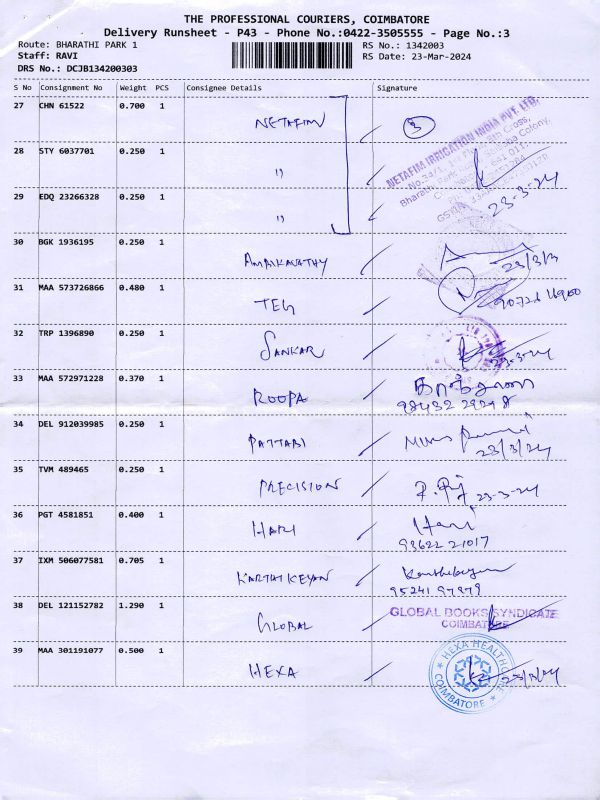 THE PROFESSIONAL COURIERS, COIMBATORE
Delivery Runsheet - P43 - Phone No.:0422-3505555 - Page No.:3
Route: BHARATHI PARK 1 RS No.: 1342003
Staff: RAVI RS Date: 23-Mar-2024
DRS No.: DCJB134200303
S No Consignment No Weight PCS Consignee Details Signature
27 CHN 61522 0.700 1 NETAFIM 3
NETAFIM IRRIGATION INDIA PVT. LTD.
28 STY 6037701 0.250 1 "
29 EDQ 23266328 0.250 1 " 23-3-24
30 BGK 1936195 0.250 1 AMBIKAVATHY 23/3/
31 MAA 573726866 0.480 1 TEG
32 TRP 1396890 0.250 1 SANKAR 23-3-24
33 MAA 572971228 0.370 1 ROOPA
98432 29248
34 DEL 912039985 0.250 1 PATTABI
23/3/24
35 TVM 489465 0.250 1 PRECISION 23-3-24
36 PGT 4581851 0.400 1 HARI Hari
93622 21017
37 IXM 506077581 0.705 1 KARTHIKEYAN Karthikeyan
95241 97979
38 DEL 121152782 1.290 1 GLOBAL GLOBAL BOOKS SYNDICATE
COIMBATORE
39 MAA 301191077 0.500 1 HEXA HEXA HEALTHCARE
COIMBATORE